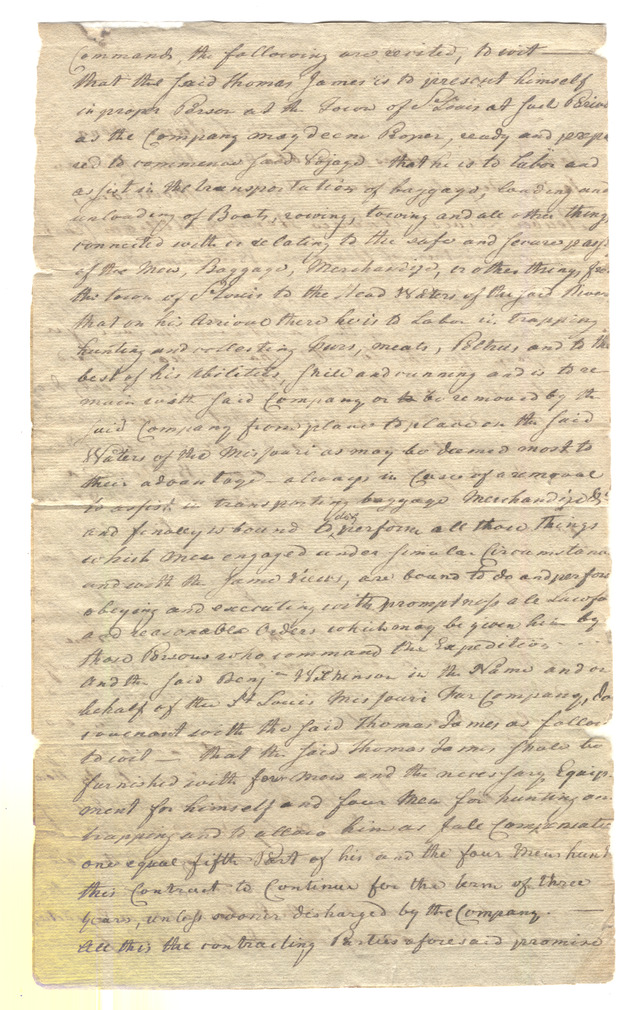 Commands, the following are recited, to wit —
that the said Thomas James is to present himself
in proper Person at the Town of St Louis at such Period
as the Company may deem Proper, ready and prepa
red to commence said Voyage – that he is to Labor and
assist in the transportation of baggage, loading and
unloading of Boats, rowing, towing and all other things
connected with or relating to the safe and secure passa
of the Men, Baggage, Merchandize, or other things from
the town of St Louis to the Head Waters of the said River
that on his Arrival there he is to Labor in trapping
hunting and collecting Furs, meats, Peltries and to the
best of his Abilities, skill and cunning and is to re
main with said Company or to be removed by the
said Company from place to place on the said
Waters of the Missouri as may be deemed most to
their advantage – always in Case of a removal
to assist in transporting baggage Merchandize &c
and finally is bound to do & perform all those things
which Men engaged under similar Circumstances
and with the same Views, are bound to do and perform
obeying and executing with promptness all Lawful
and reasonable Orders which may be given him by
those Persons who command the Expedition
And the said Benjn Wilkinson in the Name and on
behalf of the St Louis Missouri Fur Company, do
covenant with the said Thomas James as follows
to wit — that the said Thomas James shall be
furnished with four Men and the necessary Equip
ment for himself and four Men for hunting an
trapping and to allow him as full Compensatio
one equal fifth Part of his and the four Mens hunt
this Contract to Continue for the term of three
Years, unless sooner discharged by the Company. —
All this the contracting Parties aforesaid promise